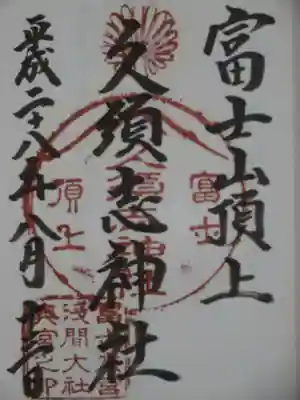 富士山頂上
久須志神社
平成二十八年八月
富士
頂上
浅間大社
奥宮之印